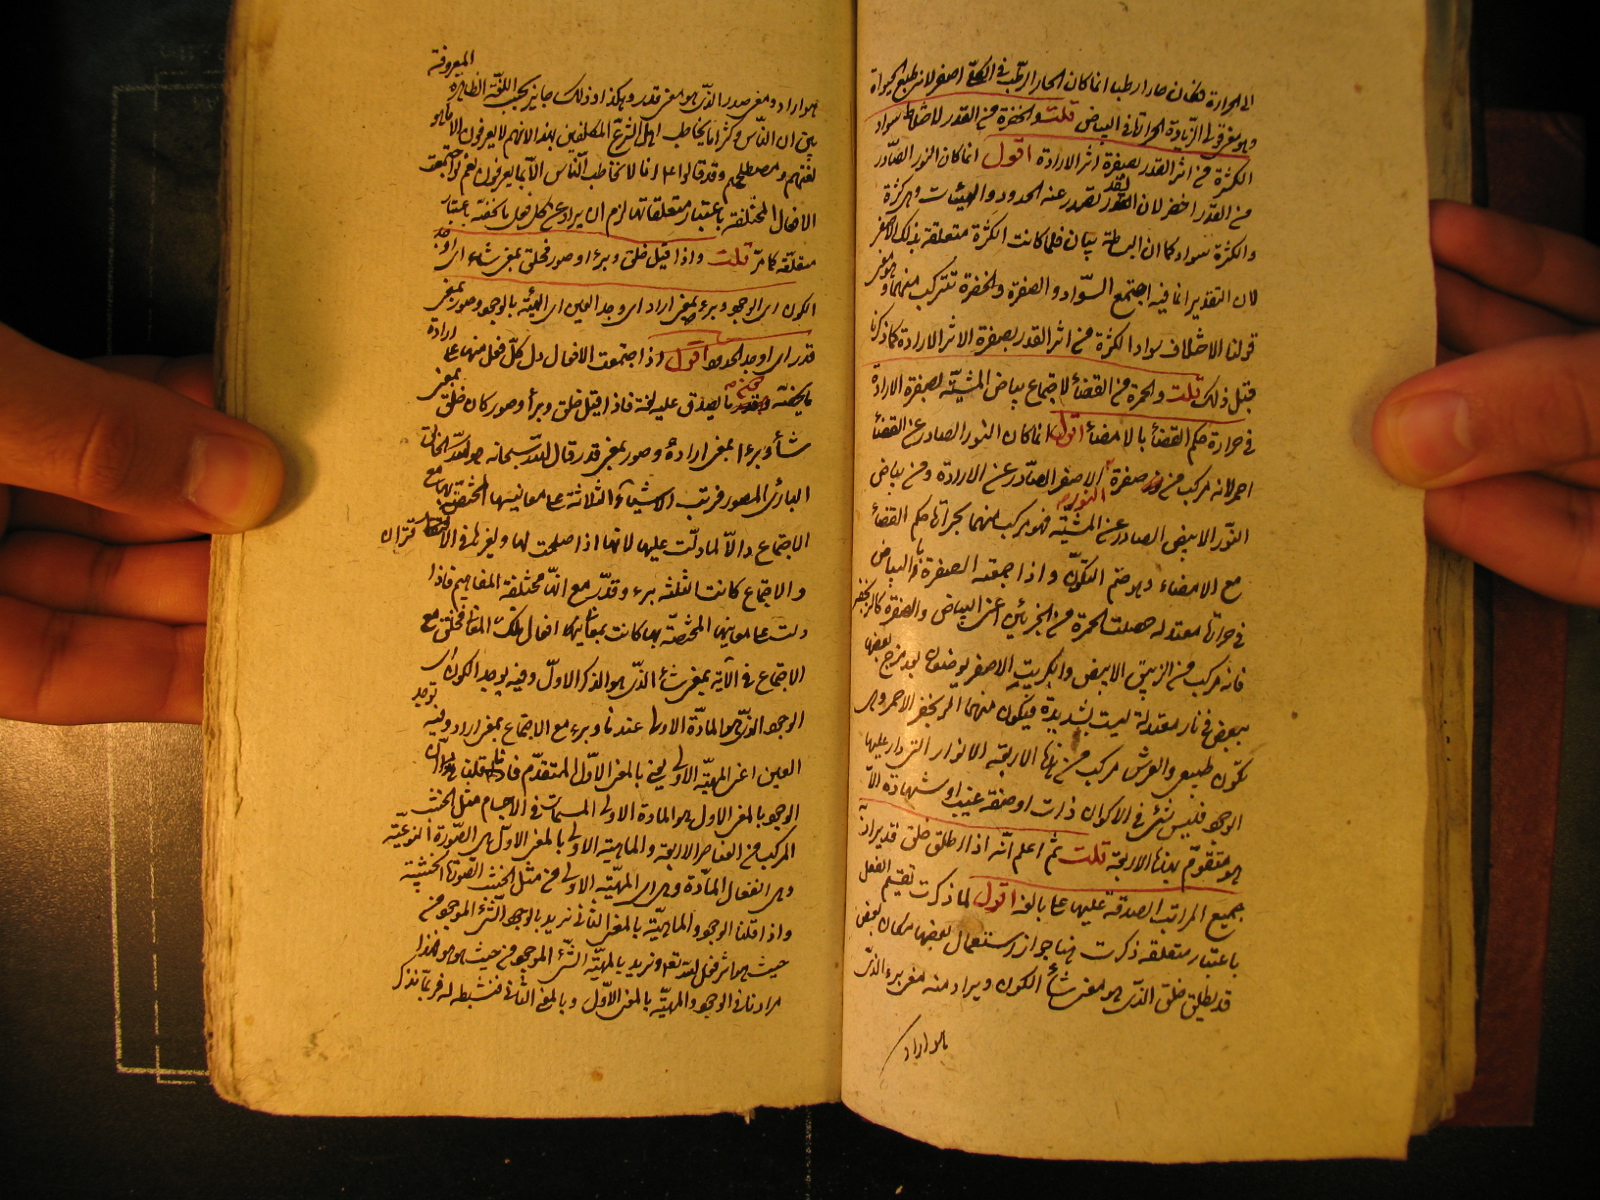 الى الحرارة فكان حارا رطبا انما كان الحار الرطب في الكلّ اصفر لانه طبع الحيوة
وهو صفرة الزيادة الحرارة في البياض قلت والخضرة من القدر لاختلاط سواد
الكثرة من اثر القدر بصفرة اثر الارادة اقول انما كان النور الصّادر
من القدر اخضر لان القدر تصدر عنه الحدود والهيئات وهي كثرة
والكثرة سواد كما ان البساطة بياض فلما كانت الكثرة متعلقة بذلك الاصفر
لان التقدير انما فيه اجتمع السّواد والصفرة والخضرة تتركب منهما وهو معنى
قولنا لاختلاط سواد الكثرة من اثر القدر بصفرة الاثر الارادة كما ذكرنا
قبل ذلك قلت والحمرة من القضاء لاجتماع بياض المشيّة بصفرة الارادة
في حرارة حكم القضاء بالامضاء اقول انما كان النور الصادر عن القضاء
احمر لانه مركب من صفرة النور الاصفر الصّادر عن الارادة ومن بياض
النّور الابيض الصادر عن المشيّة فهو مركب منهما بحرارة حكم القضاء
مع الامضاء وهو ختم التكوّن واذا جمعت الصفرة والبياض
في حرارة معتدلة حصلت الحمرة من الجزئين اعنى البياض والصفرة كالزنجفر
فانه مركب من الزيبق الابيض والكبريت الاصفر يوضعان بعد مزج بعضها
ببعض في نار معتدلة ليست بشديدة فيتكون منهما الزنجفر الاحمر وهى
تكوّن طبيعى والعرش مركب من هذه الاربعة الانوار التى دار عليها
الوجود فليس شئ في الاكوان ذات او صفة غيب او شهادة الاّ
هو متقوّم بهذه الاربعة قلت ثم اعلم انّه اذا اطلق خلق قد يراد به
جميع المراتب الصدقة عليها اقول لما ذكرت تقسيم الفعل
باعتبار متعلقه ذكرت هنا جواز استعمال بعضها مكان بعض
قد يطلق خلق الذّى هو معنى شاء الكون ويراد منه معنى برء الذّى
هو اراد
المعروفة
هو اراد ومعنى صدر الذّى هو معنى قدر وهكذا وذلك جايز بحسب اللغة الظاهرة
بين ان النّاس وكثرا ما يخاطب اهل الشرع المكلفين بهذا لانهم لا يعرفون الا ما هو
لغتهم ومصطلحهم وقد قالوا انا لا نخاطب النّاس الاّ بما يعرفون نعم لو اجتمعت
الافعال المختلفة باعتبار متعلقاتها لزم ان يراد من كل فعل ما يخصّه باعتبار
متعلّقه كما مرّ قلت واذا قيل خلق وبرء وصور فخلق بمعنى شاء اى اوجد
الكون اى الوجود وبرء بمعنى اراد اى اوجد العين اى الهيئة بالوجود وصور بمعنى
قدر اى اوجد الحدود اقول اذا اجتمعت الافعال دل كلّ فعل منها على ارادة
ما يخصّه ما يصدق عليه لغة فاذا قيل خلق وبرأ وصور كان خلق بمعنى
شاء وبرء بمعنى ارادة وصور بمعنى قدر قال الله سبحانه هو الله الخالق
البارئ المصور فرتب الاشياء الثلاثة على معانيها المختصّة بها مع
الاجتماع والاّ لما دلّت عليها لانها اذا اصلحت لها ولغيرها في الافتراق
والاجتماع كانت الثلثة برء وقدّر مع انّها مختلفة المفاهيم فاذا
دلت على معانيها المختصّة بها كانت بمعانيها افعال تلك المعانى فخلق مع
الاجتماع في الآية بمعنى شاء الذّى هو الذكر الاوّل وفيه يوجد الكون اى
الوجود الذّى هو المادّة الاولى عندنا وبرء مع الاجتماع بمعنى اراد وفيه توجد
العين اعنى المهيّة الاولى يعنى بالمعنى الاوّل المتقدّم فاذا قلنا
الوجود بالمعنى الاول هو المادة الاولى المسمات في الاجسام مثل الخشب
المركب من العناصر الاربعة والماهية الاولى بالمعنى الاوّل هى الصّورة النوعيّة
وهى انفعال المادّة وهى اى المهيّة الاولى من مثل الخشب الصّورة الخشبيّة
واذا قلنا الوجود والماهيّة بالمعنى الثّانى نريد بالوجود الشئ الموجود من
حيث هو اثر فعل الله تعم ونريد بالمهيّة الشّئ الموجود من حيث هو هو فهذا
مرادنا في الوجود والمهيّة بالمعنى الاوّل وبالمعنى الثّانى فتنبّه له فربما نذكر